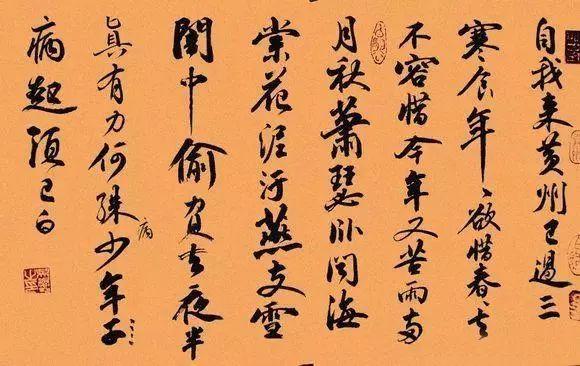 自我来黄州已過三
寒食年〻欲惜春〻去
不容惜今年又苦雨兩
月秋蕭瑟卧聞海
棠花泥汙燕支雪
闇中偷負去夜半
真有力何殊病少年子
病起頭已白